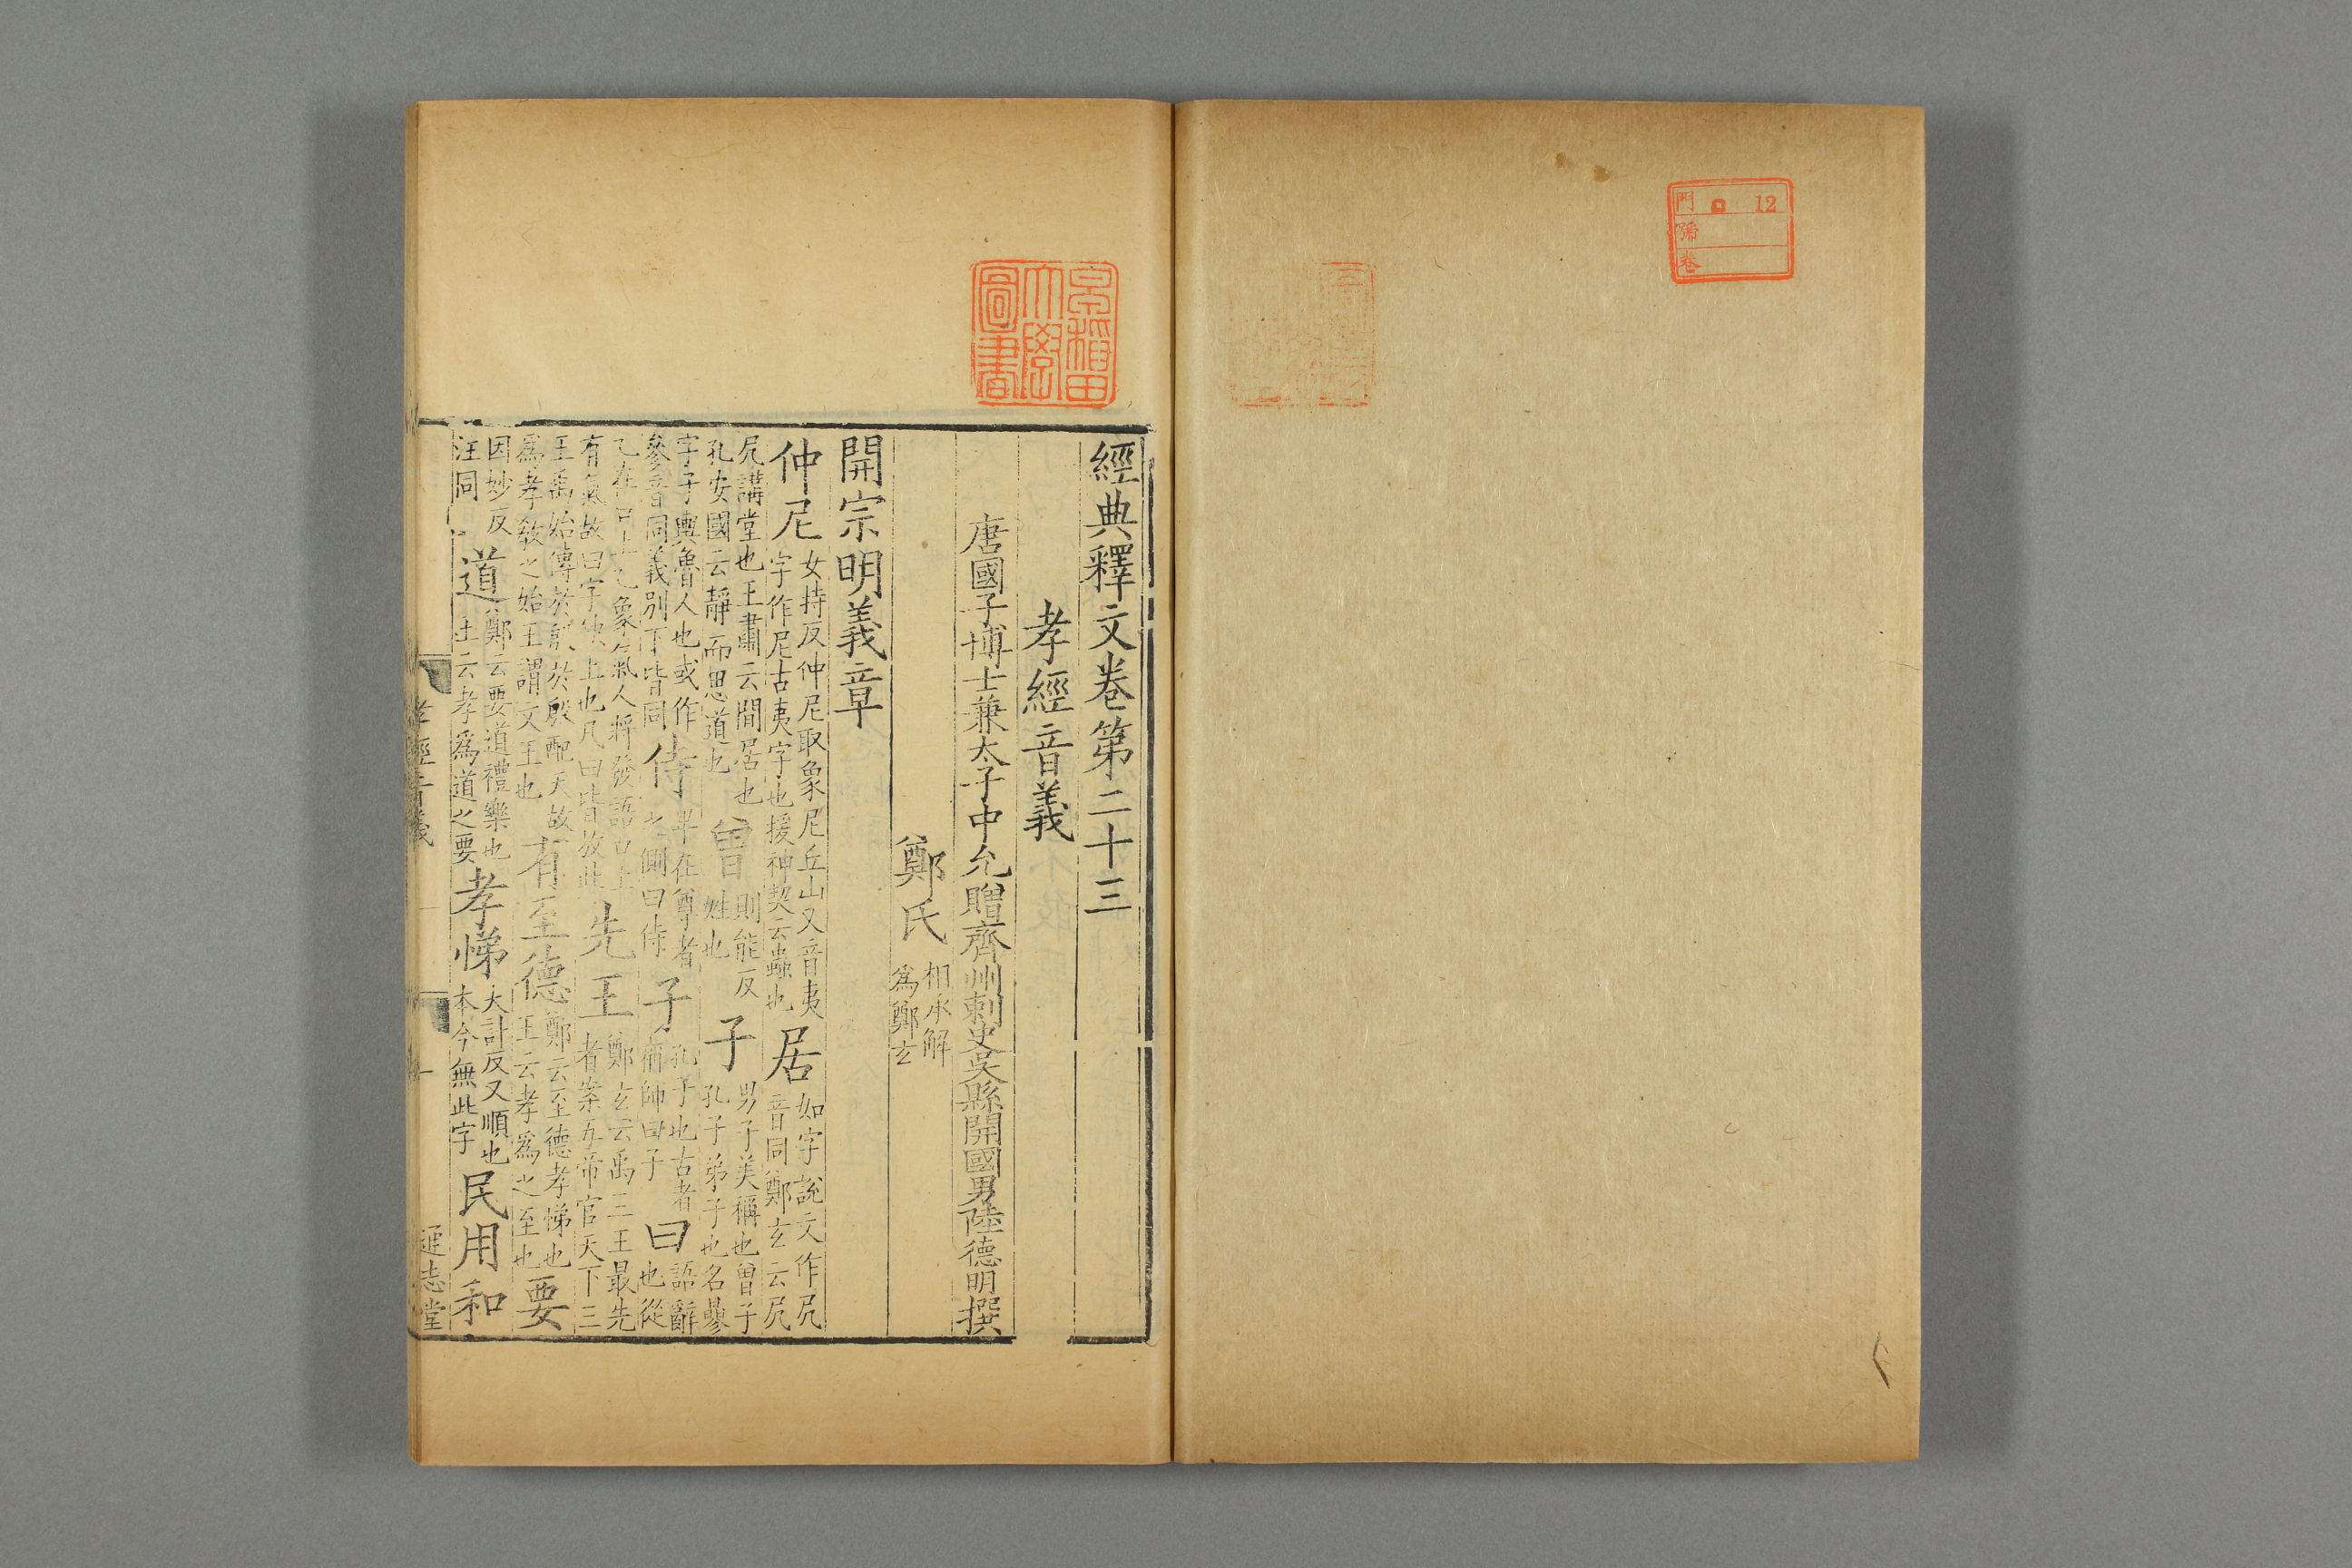 門 ロ 12
號
卷
早稲田
大學
圖書
經典釋文卷第二十三
孝經音義
唐國子博士兼太子中允贈齊州刺史吳縣開國男陸德明撰
鄭氏 相承解
爲鄭玄
開宗明義章
仲尼 女持反仲尼取象尼丘山又音夷
字作尼古夷字也援神契云蟲也
居 如字說文作凥
音同鄭玄云凥
凥講堂也王肅云閒居也
孔安國云靜而思道也
曾 則能反
姓也
子 男子美稱也曾子
孔子弟子也名參
字子輿魯人也或作
參音同義別下皆同
侍 卑在尊者
之側曰侍
子 孔子也古者
稱師曰子
曰 語辭
也從
乙在口上乙象氣人將發語口上
有氣故曰字缺上也凡曰皆放此
先王 鄭玄云禹三王最先
者案五帝官天下三
王禹始傳於殷配天故
爲孝敎之始王謂文王也
有至德 鄭云至德孝悌也
王云孝爲之至也
要
因妙反
注同
道 鄭云要道禮樂也
王云孝爲道之要
孝悌 大計反又順也
本今無此字
民用和
孝經音義
通志堂